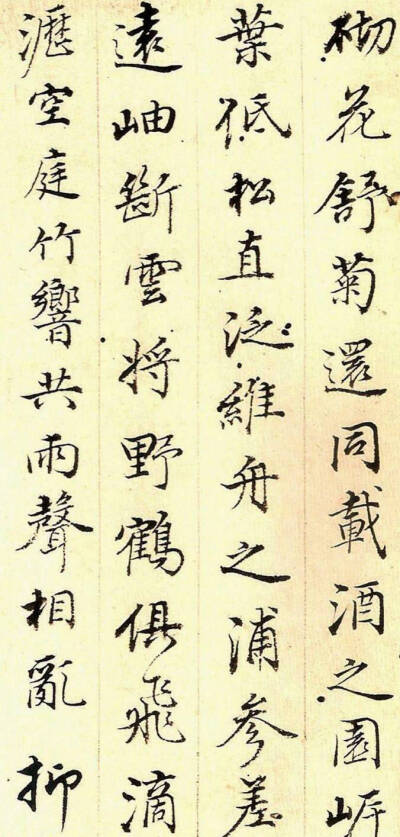 砌花舒菊還同載酒之園岸
葉低松直泛維舟之浦參差
遠岫斷雲將野鶴俱飛滴
瀝空庭竹響共雨聲相亂抑